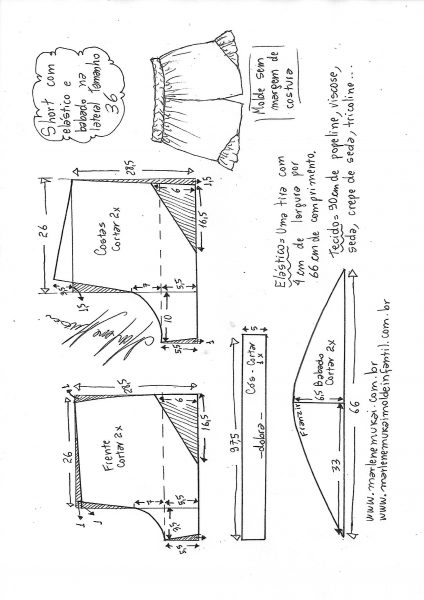 Short com
elástico e
babado na
lateral Tamanho
36
Molde sem
margem de
costura
Elástico = Uma tira com
4 cm de largura por
66 cm de comprimento.
Tecido = 90cm de popeline, viscose,
seda, crepe de seda, tricoline...
28,5
1,5
6
16,5
26
Costas
Cortar 2x
7
5,5
1,5
10
5,5
1
1
28,5
1
6
16,5
26
Frente
Cortar 2x
7
5,5
1
1
5,5
1
97,5
5
Cós - Cortar
1x
dobra
Franzir
6,5 Babado
Cortar 2x
33
66
www.marlenemukai.com.br
www.marlenemukaimoldeinfantil.com.br